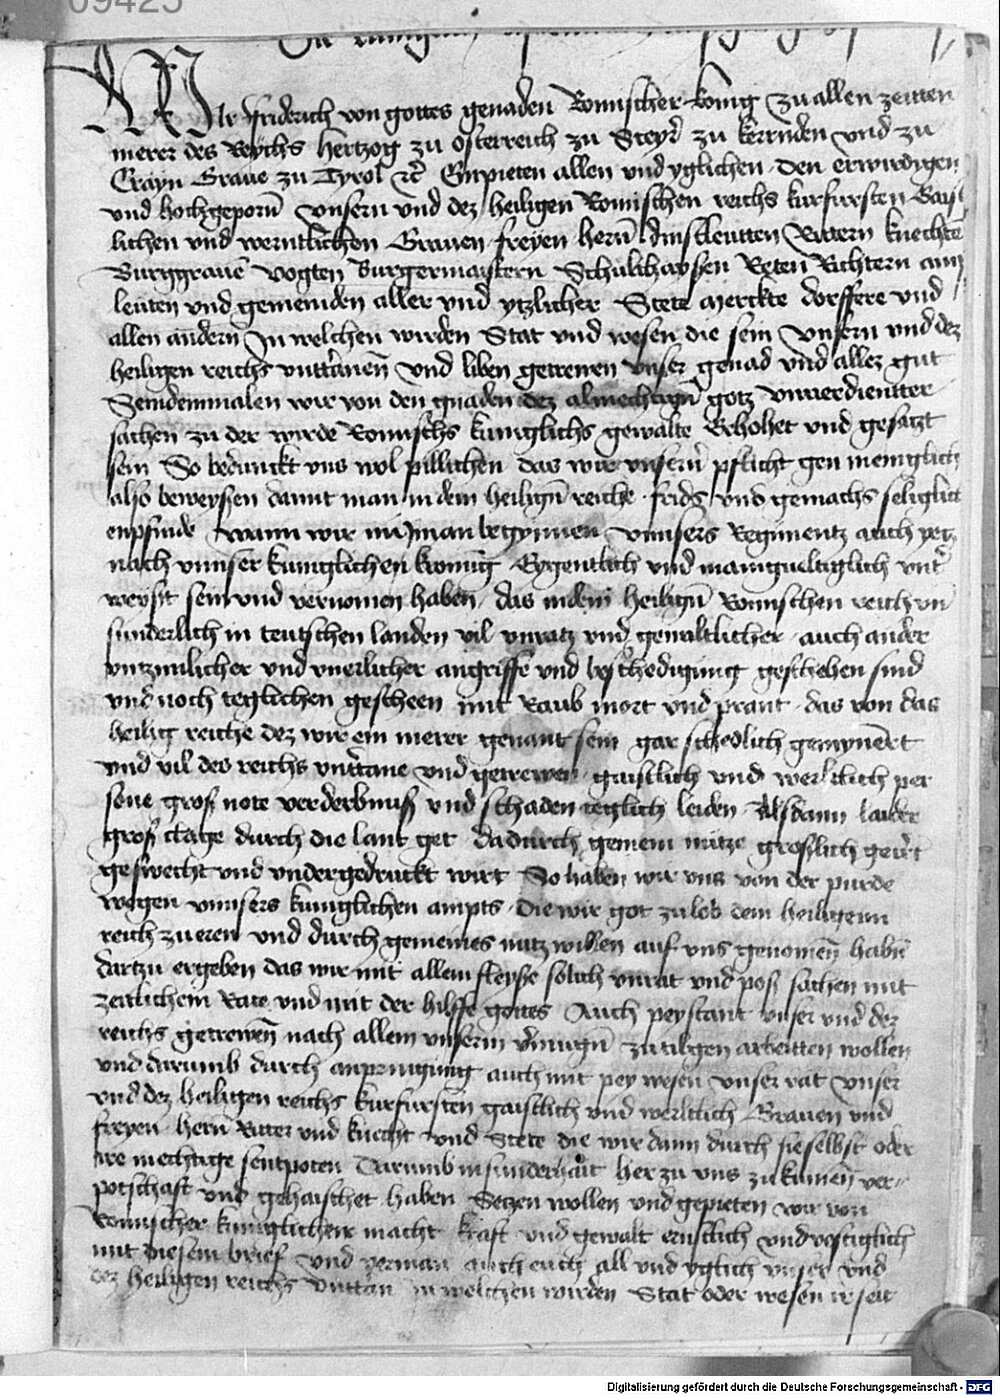 09425
WIr Friderich von gottes genaden Romischer konig zu allen zeitten
merer des Reychs hertzog zu osterreich zu Steyr̄ zu kernden vnd zu
Crayn Graue zu Tyrol ꝛc̄ Enpieten allen vnd yglichen den erwirdygen
vnd hochgeporn̄ vnsern vnd dez heiligen Romischen reichs kurfursten Gaist
lichen vnd werntlichen Grauen freyen hern̄ dinstleutten Rittern knechte
Burggrauē vogten burgermaistern Schulthayssen Reten Richtern am
leuten vnd gemeinden aller vnd ytzlicher Stete merckte dorffere vnd
allen andern In welchen wirden Stat vnd wesen die sein vnsern vnd dez
heiligen reichs vnttanen̄ vnd liben getrewen vnser genad vnd allez gut
Seindemmalen wir von den gnaden dez almechtign̄ gotz vnuerdientter
sachen zu der wirde Romischs kuniglichs gewalts Erhohet vnd gesatzt
sein So bedunckt vns wol pillichen das wir vnsern̄ pflicht gen meniglich
also beweyssen damit man in dem heilign̄ reiche frids vnd gemachs seliglich
enpfinde wann wir nu man begynnen vnnsers Regimentz auch yetz
nach vnnser kuniglichen kronūg Eygentlich vnd manigueltiglich vnt̄
weyst sein vnd vernomen haben das in dem heilign̄ Romischen reich vn̄
sunderlich in teutschen landen vil vnratz vnd gewaltlicher auch ander
vnzimlicher vnd vnerlicher angriffe vnd beschedigung geschehen sind
vnd noch teglichen gescheen mit Raub mort vnd prant das von das
heilig reiche dez wir ein merer genant sein gar schedlich gemynert
vnd vil des reichs vnttane vnd getrewen gaistlich vnd werltlich per
sone gross note verderbnuss vnd schaden teglich leiden Alsdann laider
gross clage durch die lant get dadurch gemein nutze grosslich geirt
geswecht vnd vndergedruckt wirt So haben wir vns von der purde
wegen vnnsers kuniglichen ampts die wir got zu lob dem heiligenn
reich zu eren vnd durch gemeines nutz willen auf vns genomen̄ habn̄
dartzu ergeben das wir mit allem fleysse solich vnrat vnd poss sachen mit
zeitlichem Rate vnd mit der hilffe gottes Auch peystant vnser vnd dez
reichs getrewen̄ nach allem vnserm v̄mugn̄ zu tilgen arbeitten wollen
vnd darumb durch anpringung auch mit pey wesen vnser rat vnser
vnd dez heiligen reichs kurfursten gaistlich vnd werltlich Grauen vnd
freyen hern̄ Ritter vnd knecht vnd Stete die wir dann durch sie selbst oder
ire mechtige sentpoten Darumb in sunderhait her zu vns zu kumen̄ ver-
potschaft vnd gehaischet haben Setzen wollen vnd gepieten wir von
Romischer kuniglicher macht kraft vnd gewalt ernstlich vnd vestiglich
mit diesem brief vnd verman auch euch all vnd yglich vnser vnd
dez heiligen reichs vnttan in welchen wirden Stat oder wesen ir seit
Digitalisierung gefördert durch die Deutsche Forschungsgemeinschaft - DFG